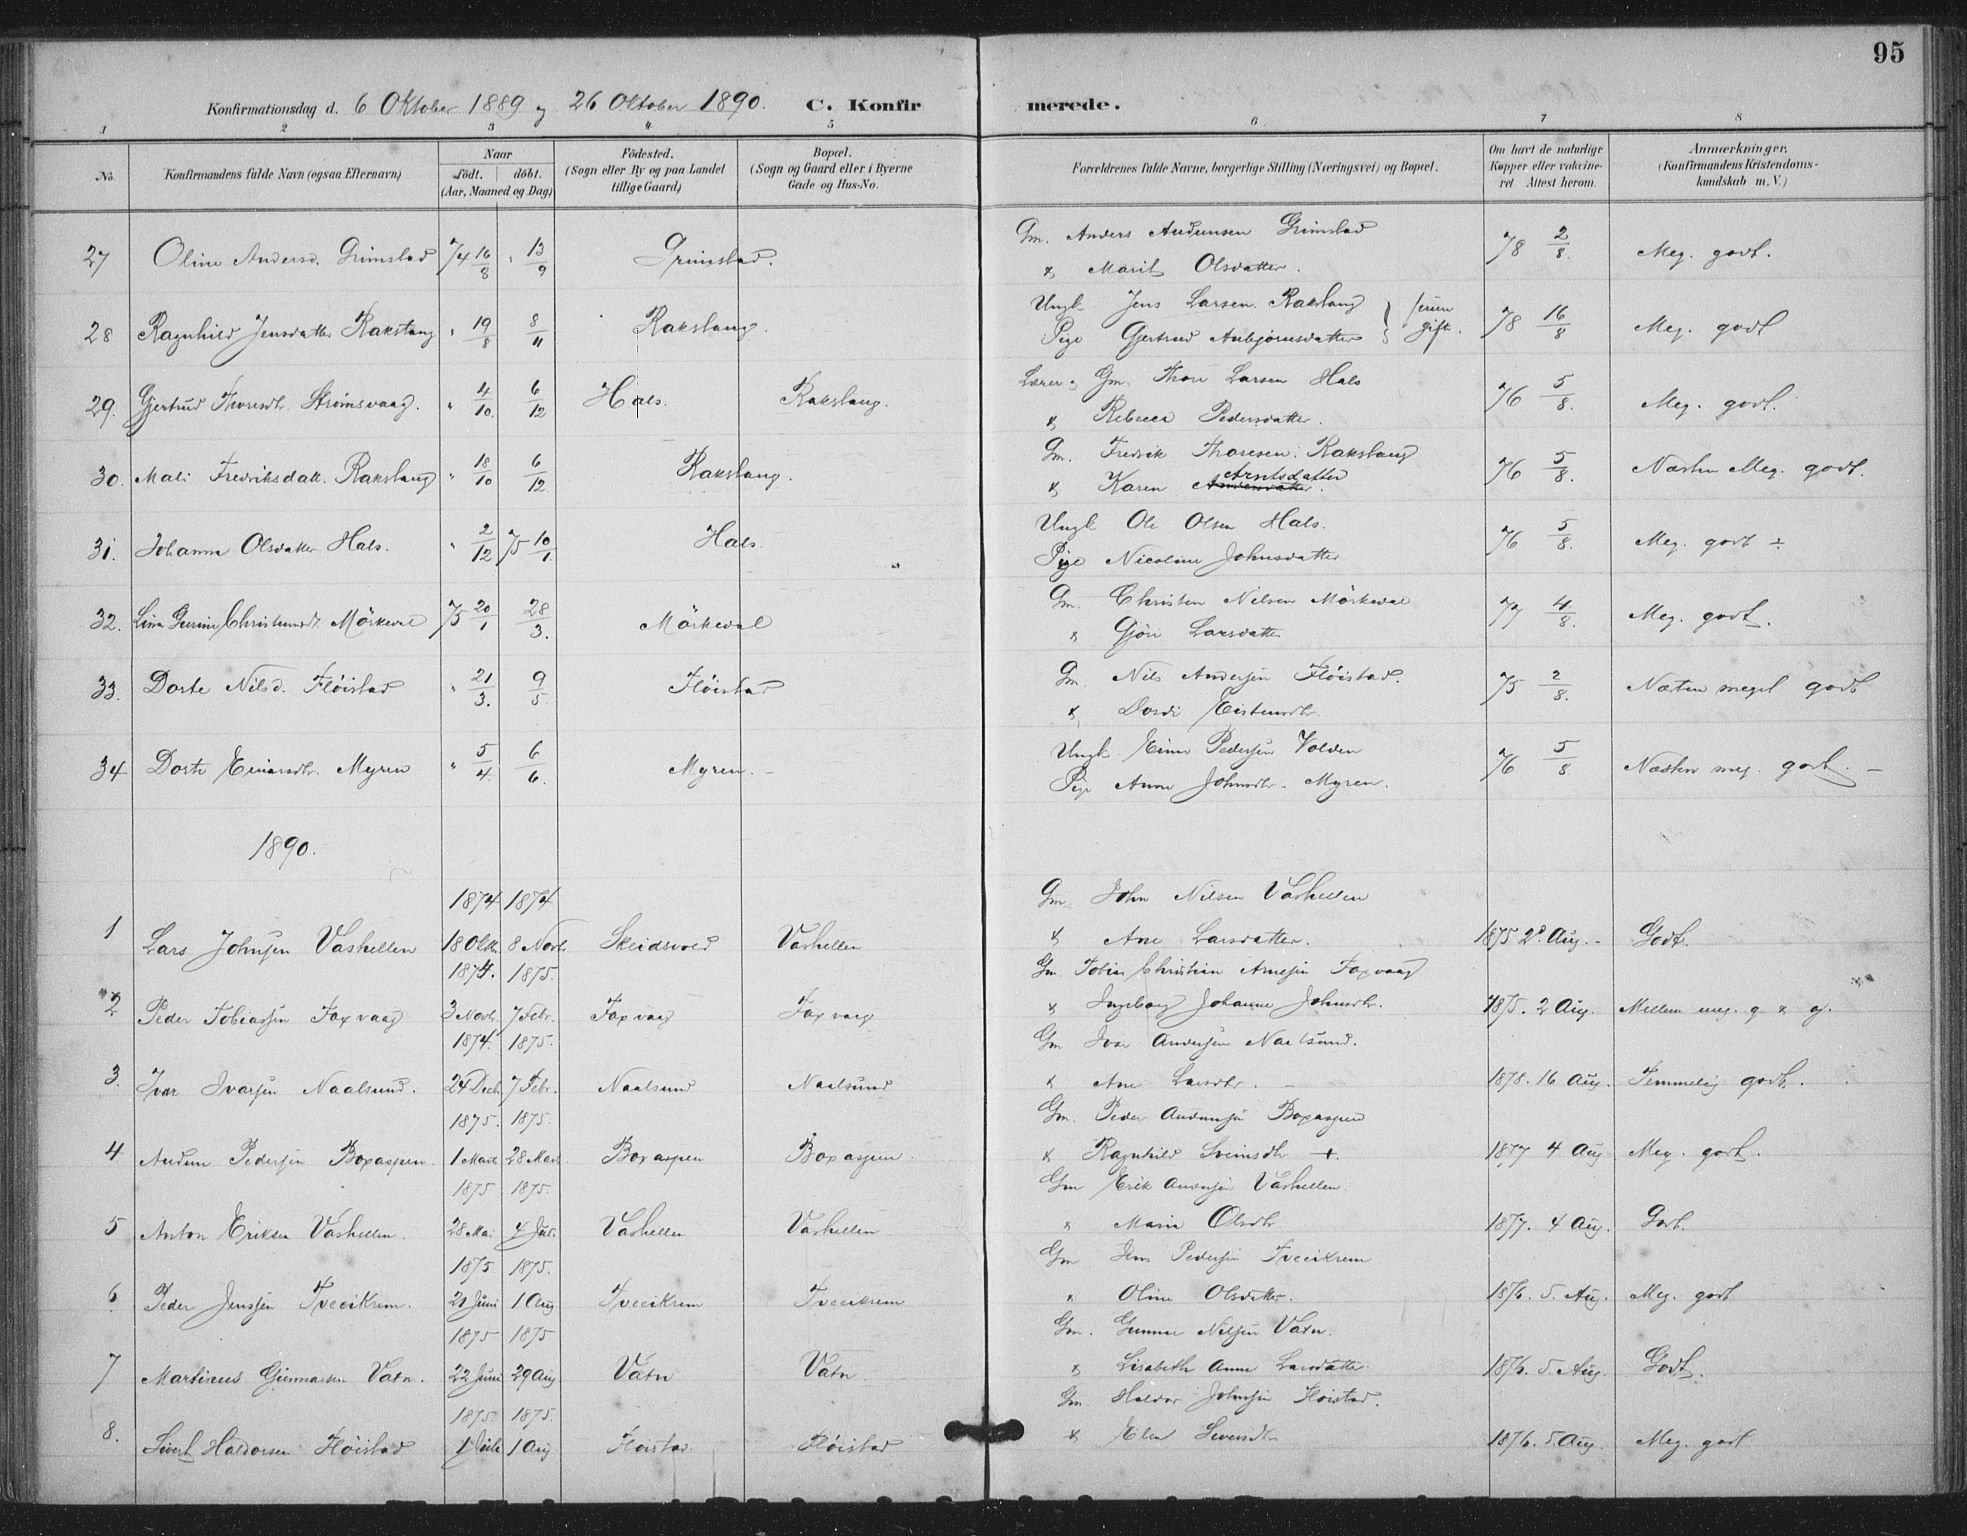 95
Konfirmationsdag d. 6 Oktober 1889 og 26 Oktober 1890. C. Konfirmerede.
1 2 3 4 5 6 7 8
No. Konfirmandens fulde Navn (ogsaa Efternavn) Naar födt. döbt. (Aar, Maaned og Dag) Födested. (Sogn eller By og paa Landet tillige Gaard) Bopæl. (Sogn og Gaard eller i Byerne Gade og Hus-No. Forældrenes fulde Navne, borgerlige Stilling (Næringsvei) og Bopæl. Om havt de naturlige Kopper eller vaccineret. Attest herom. Anmærkninger. (Konfirmandens Kristendomskundskab m. V.)
27 Oline Andersd. Grimstad 74 16/8 " 13/9 Grimstad. Gm. Anders Audunsen Grimstad 78 2/8. Meg. godt.
& Marit Olsdatter.
28 Ragnhild Jensdatter Rakstang " 19/8 8/11 Rakstang. Ungk. Jens Larsen Rakstang 78 16/8 Meg. godt
Pige Gjertrud Anbjørnsdatter } senere gift.
29. Gjertrud Thoresdtr. Strömsvaag. " 4/10. 6/12 Hals. Rakstang. Lærer og Gm. Thore Larsen Hals 76 5/8. Meg. godt.
& Rebecca Pedersdatter.
30. Mali Fredriksdatt. Rakstang " 18/10 6/12 Rakstang. Gm. Fredrik Thoresen Rakstang 76 5/8. Næsten Meg. godt.
& Karen Arntsdatter
31. Johanna Olsdatter Hals. " 2/12 75 10/1. Hals. Ungk. Ole Olsen Hals. 76 5/8. Meg. godt ÷
Pige Nicoline Johnsdatter
32. Lina Gurine Christensdt. Mörkeval 75 20/1 28/3. Mörkeval Gm. Christen Nilsen Mörkeval 77 4/8. Meg. godt.
& Gjöri Larsdatter
33. Dorte Nilsd. Flöistad " 21/3. 9/5 Flöistad Gm. Nils Andersen Flöistad. 75 2/8. Næsten meget godt
& Dordi Eistensdtr.
34 Dorte Einarsdtr. Myren " 5/4. 6/6. Myren. Ungk. Einar Pedersen Volden 76 5/8. Næsten meg. godt.
Pige Anne Johnsdtr. Myren.
1890.
1874 1874 Gm. John Nilsen Vashellen
1 Lars Johnsen Vashellen 18 Okt. 8 Novb. Skeidsvold Vashellen & Ane Larsdatter. 1875 28 Aug. Godt.
1874. 1875. Gm. Tobias Christian Arnesen Faxvaag
2 Peder Tobiassen Faxvaag 3 Novb. 7 Febr. Faxvaag Faxvaag & Ingeborg Johanne Johnsdtr. 1875. 2 Aug. Mellem meg. g & g.
1874. 1875. Gm Ivar Andersen Naalsund.
3. Ivar Ivarsen Naalsund. 24 Decb. 7 Febr. Naalsund Naalsund & Ane Larsdtr. 1878. 16 Aug. Temmelig godt.
1875. 1875. Gm. Peder Audunsen Boxaspen
4 Audun Pedersen Boxaspen. 1 Marts 28 Marts Boxaspen Boxaspen. & Ragnhild Sveinsdtr +. 1877 4 Aug Meg. godt.
1875 1875. Gm Erik Andersen Vashellen
5 Anton Eriksen Vashellen. 28 Mai 4 Juli. Vashellen Vashellen & Marie Olsdtr. 1877. 4 Aug. Godt.
1875. 1875. Gm Jens Pedersen Tveeikrem
6 Peder Jenssen Tveeikrem. 21 Juni 1 Aug Tveeikrem Tveeikrem & Oline Olsdatter. 1876. 5. Aug. Meg. godt
1875 1875 Gm. Gunnar Nilsen Vatn.
7 Martinus Gunnarsen Vatn. 22 Juni 29 Aug Vatn Vatn & Lisabeth Anne Larsdatter. 1876. 5 Aug. Godt.
1875. 1875. Gm. Haldor Johnsen Flöistad.
8. Sivert Haldorsen Flöistad 1 Juli 1 Aug Flöistad. Flöistad & Elen Siversdtr 1876. 5. Aug. Meg. godt